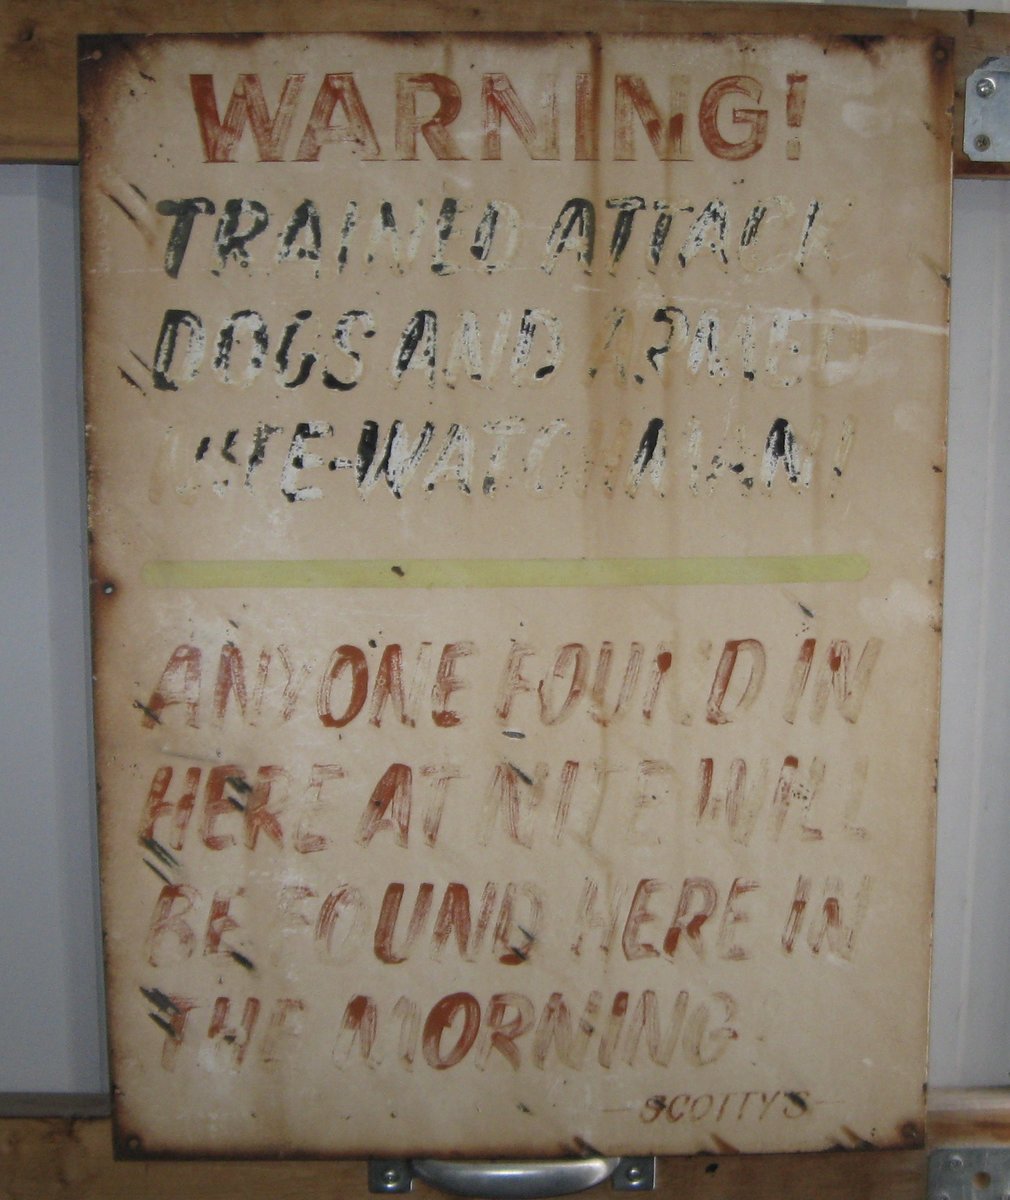 WARNING!
TRAINED ATTACK
DOGS AND ARMED
NITE-WATCHMAN!
ANYONE FOUND IN
HERE AT NITE WILL
BE FOUND HERE IN
THE MORNING
— SCOTTY'S —